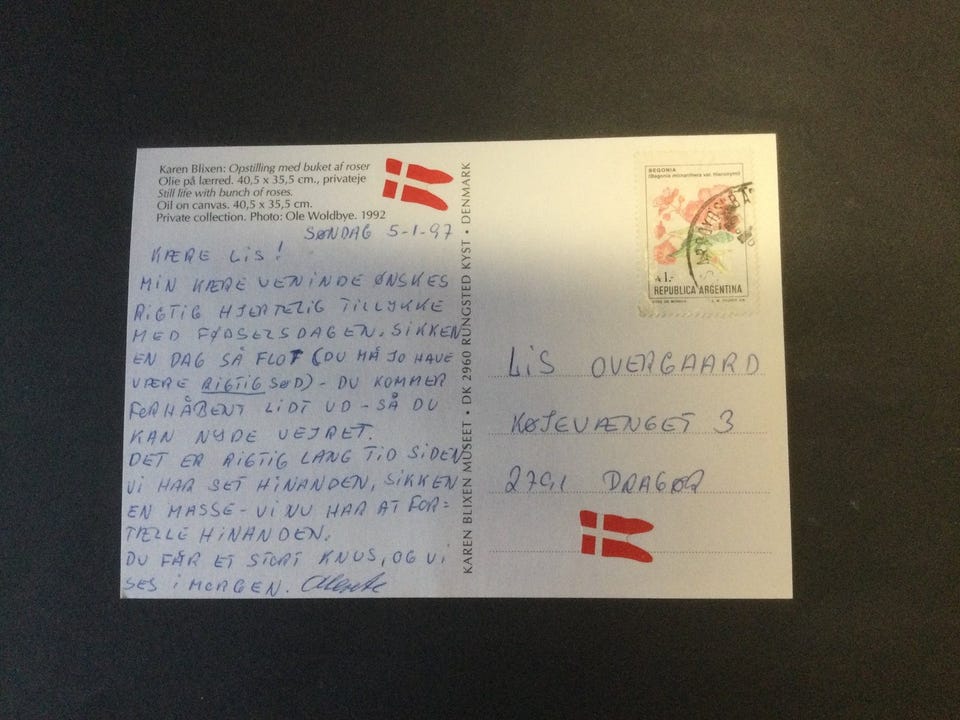 Karen Blixen: Opstilling med buket af roser
Olie på lærred. 40,5 x 35,5 cm., privateje
Still life with bunch of roses.
Oil on canvas. 40,5 x 35,5 cm.
Private collection. Photo: Ole Woldbye. 1992
SØNDAG 5-1-97
KÆRE LIS!
MIN KÆRE VENINDE ØNSKES
RIGTIG HJERTELIG TILLYKKE
MED FØDSELSDAGEN. SIKKEN
EN DAG SÅ FLOT (DU MÅ JO HAVE
VÆRE RIGTIG SØD) - DU KOMMER
FORHÅBENT LIDT UD - SÅ DU
KAN NYDE VEJRET.
DET ER RIGTIG LANG TID SIDEN
VI HAR SET HINANDEN, SIKKEN
EN MASSE - VI NU HAR AT FOR=
TÆLLE HINANDEN.
DU FÅR ET STORT KNUS, OG VI
SES I MORGEN.
KAREN BLIXEN MUSEET • DK 2960 RUNGSTED KYST • DENMARK
BEGONIA
(Begonia micranthera var. hieronymi)
A1.-
REPUBLICA ARGENTINA
LIS OVERGAARD
KØJEVÆNGET 3
2791 DRAGØR